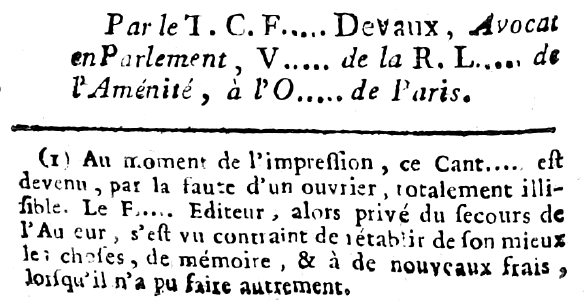 Par le T. C. F..... Devaux, Avocat
en Parlement, V..... de la R. L..... de
l'Aménité, à l'O..... de Paris.
(1) Au moment de l'impreſſion, ce Cant..... eſt
devenu, par la faute d'un ouvrier, totalement illi-
ſible. Le F..... Editeur, alors privé du ſecours de
l'Au eur, s'eſt vu contraint de rétablir de ſon mieux
les choſes, de mémoire, & à de nouveaux frais,
lorſqu'il n'a pu faire autrement.